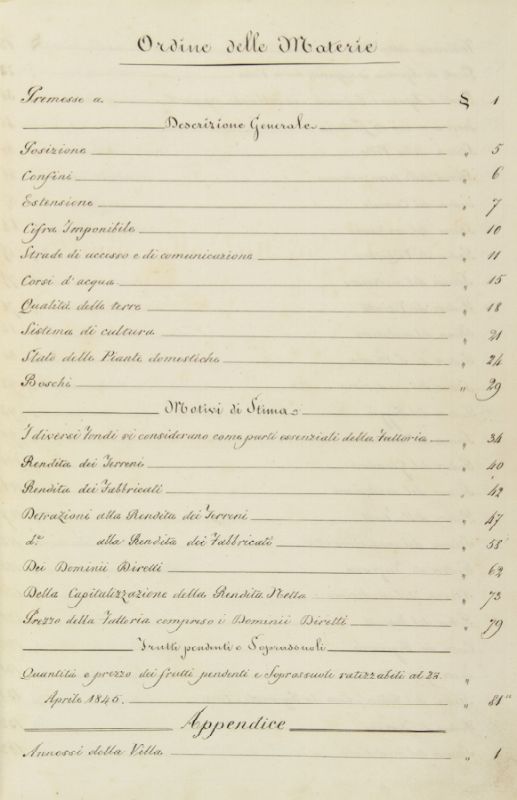 Ordine delle Materie
Premesse a. § 1
Descrizione Generale
Posizione " 5
Confini " 6
Estensione " 7
Cifra Imponibile " 10
Strade di accesso e di comunicazione " 11
Corsi d'acqua " 15
Qualità delle terre " 18
Sistema di cultura " 21
Stato delle Piante domestiche " 24
Boschi " 29
Motivi di Stima
I diversi Fondi si considerano come parti essenziali della Fattoria " 34
Rendita dei Terreni " 40
Rendita dei Fabbricati " 42
Detrazioni alla Rendita dei Terreni " 47
d.º alla Rendita dei Fabbricati " 58
Dei Dominii Diretti " 62
Della Capitalizzazione della Rendita Netta " 73
Prezzo della Fattoria compreso i Dominii Diretti " 79
Frutti pendenti e Soprassuoli
Quantità e prezzo dei frutti pendenti e Soprassuoli ratizzabili al 23. "
Aprile 1845. " 81
Appendice
Annessi della Villa " 1